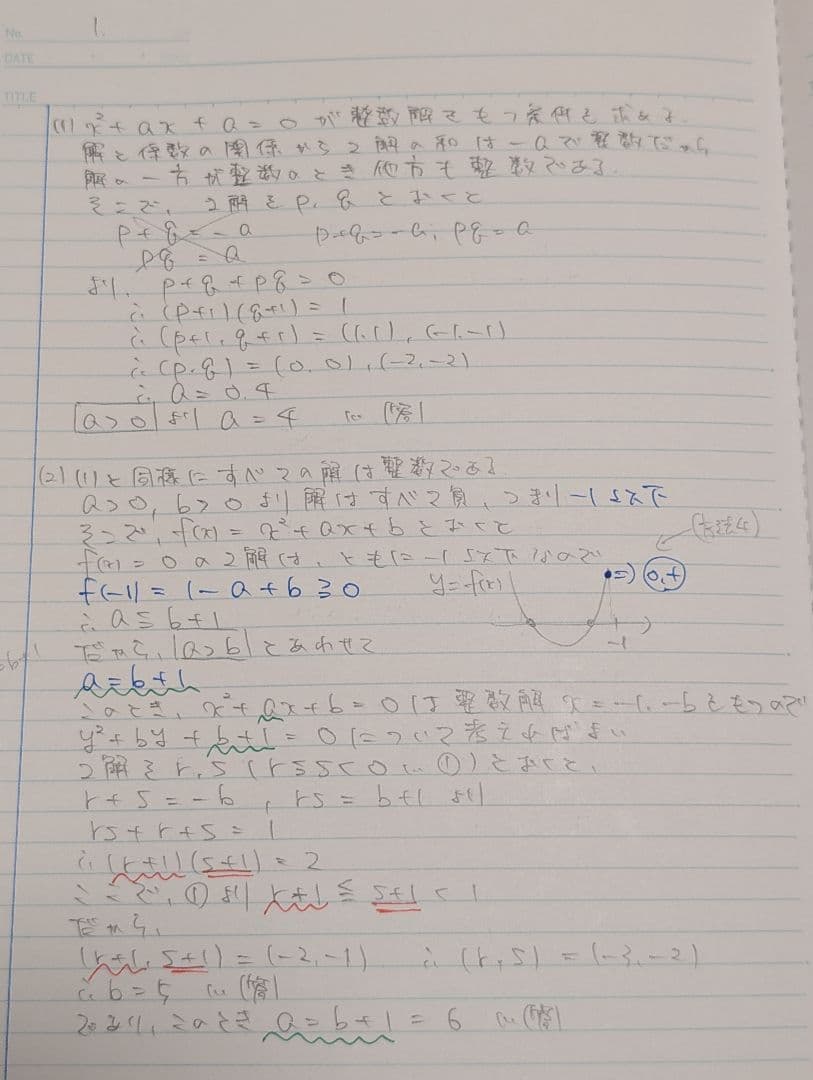 No.
1.
DATE
TITLE
(1) x²+ax+a=0が整数解をもつ条件を求める.
解と係数の関係から2解の和は-aで整数だから
解の一方が整数のとき他方も整数である.
そこで、2解をp, qとおくと
p+q=-a p+q=-a, pq=a
pq=a
より. p+q+pq=0
∴(p+1)(q+1)=1
∴(p+1, q+1)=(1,1), (-1,-1)
∴(p,q)=(0,0), (-2,-2)
∴a=0,4
a>0よりa=4 …(答)
(2) (1)と同様にすべての解は整数である
a>0, b>0より解はすべて負、つまり-1以下
そこで, f(x)=x²+ax+bとおくと
f(x)=0の2解は、ともに-1以下なので
(方法4)
f(-1)=1-a+b≧0 y=f(x) ⇒ 0,+
∴a≦b+1
-1
だから, a>bとあわせて
a=b+1
このとき, x²+ax+b=0は整数解x=-1,-bをもつので
y²+by+b+1=0について考えればよい
2解をr,s(r≦s<0…①)とおくと、
r+s=-b, rs=b+1より
rs+r+s=1
∴(r+1)(s+1)=2
ここで, ①よりr+1≦s+1<1
だから,
(r+1, s+1)=(-2,-1) ∴(r,s)=(-3,-2)
∴b=5 …(答)
であり, このときa=b+1=6 …(答)